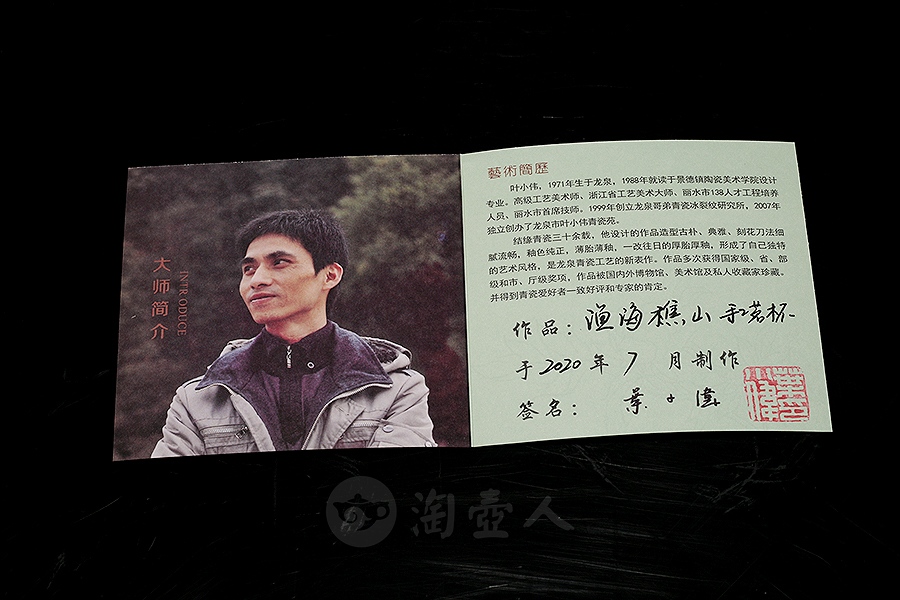 大师简介
INTRODUCE
藝術簡歷
叶小伟，1971年生于龙泉，1988年就读于景德镇陶瓷美术学院设计
专业。高级工艺美术师、浙江省工艺美术大师、丽水市138人才工程培养
人员、丽水市首席技师。1999年创立龙泉哥弟青瓷冰裂纹研究所，2007年
独立创办了龙泉市叶小伟青瓷苑。
结缘青瓷三十余载，他设计的作品造型古朴、典雅、刻花刀法细
腻流畅，釉色纯正，薄胎薄釉，一改往日的厚胎厚釉，形成了自己独特
的艺术风格，是龙泉青瓷工艺的新表作。作品多次获得国家级、省、部
级和市、厅级奖项，作品被国内外博物馆、美术馆及私人收藏家珍藏。
并得到青瓷爱好者一致好评和专家的肯定。
作品：渔海樵山 茗杯
于2020年7月制作
签名：葉小偉
淘壶人